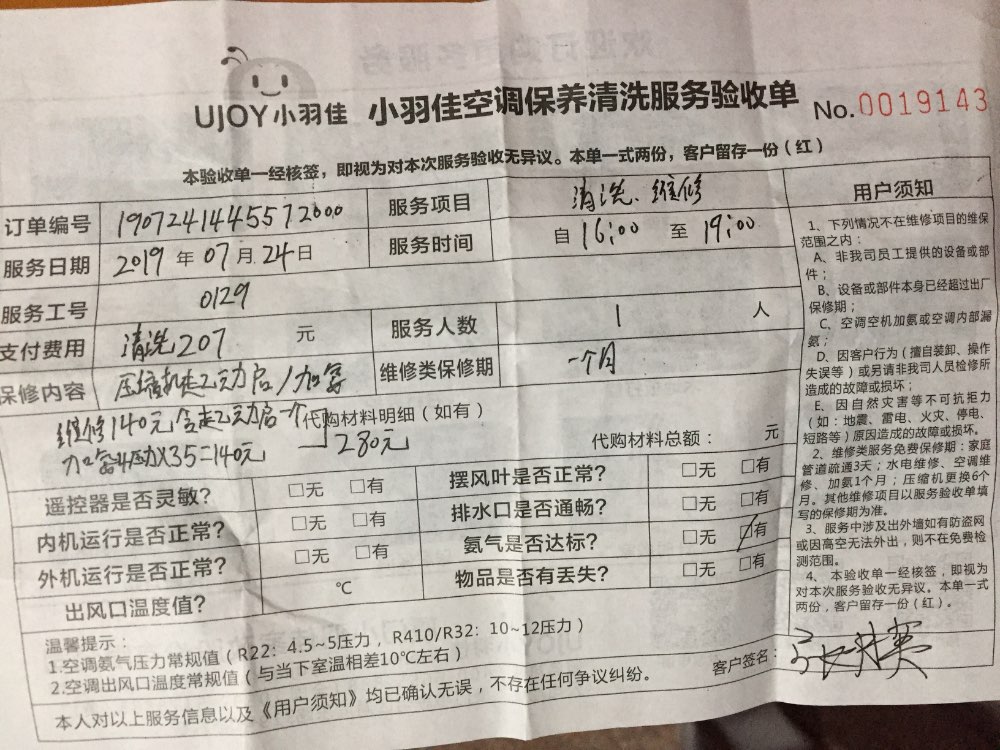 UJOY小羽佳 小羽佳空调保养清洗服务验收单 No.0019143
本验收单一经核签，即视为对本次服务验收无异议。本单一式两份，客户留存一份（红）
订单编号 1907241445572000 服务项目 清洗、维修
服务日期 2019 年 07 月 24 日 服务时间 自 16:00 至 19:00
服务工号 0129
支付费用 清洗207 元 服务人数 1 人
保修内容 压缩机起动启/加氟 维修类保修期 一个月
维修140元含起动启一个 代购材料明细（如有）
加氟4压力X35=140元 280元 代购材料总额： 元
遥控器是否灵敏？ □无 □有 摆风叶是否正常？ □无 □有
内机运行是否正常？ □无 □有 排水口是否通畅？ □无 □有
外机运行是否正常？ □无 □有 氨气是否达标？ □无 □有
出风口温度值？ ℃ 物品是否有丢失？ □无 □有
温馨提示：
1.空调氨气压力常规值（R22：4.5~5压力，R410/R32：10~12压力）
2.空调出风口温度常规值（与当下室温相差10℃左右）
本人对以上服务信息以及《用户须知》均已确认无误，不存在任何争议纠纷。 客户签名：
用户须知
1、下列情况不在维修项目的维保
范围之内：
A、非我司员工提供的设备或部
件；
B、设备或部件本身已经超过出厂
保修期；
C、空调空机加氨或空调内部漏
氨；
D、因客户行为（擅自装卸、操作
失误等）或另请非我司人员检修所
造成的故障或损坏；
E、因自然灾害等不可抗拒力
（如：地震、雷电、火灾、停电、
短路等）原因造成的故障或损坏。
2、维修类服务免费保修期：家庭
管道疏通3天；水电维修、空调维
修、加氨1个月；压缩机更换6个
月。其他维修项目以服务验收单填
写的保修期为准。
3、服务中涉及出外墙如有防盗网
或因高空无法外出，则不在免费检
测范围。
4、本验收单一经核签，即视为
对本次服务验收无异议。本单一式
两份，客户留存一份（红）。